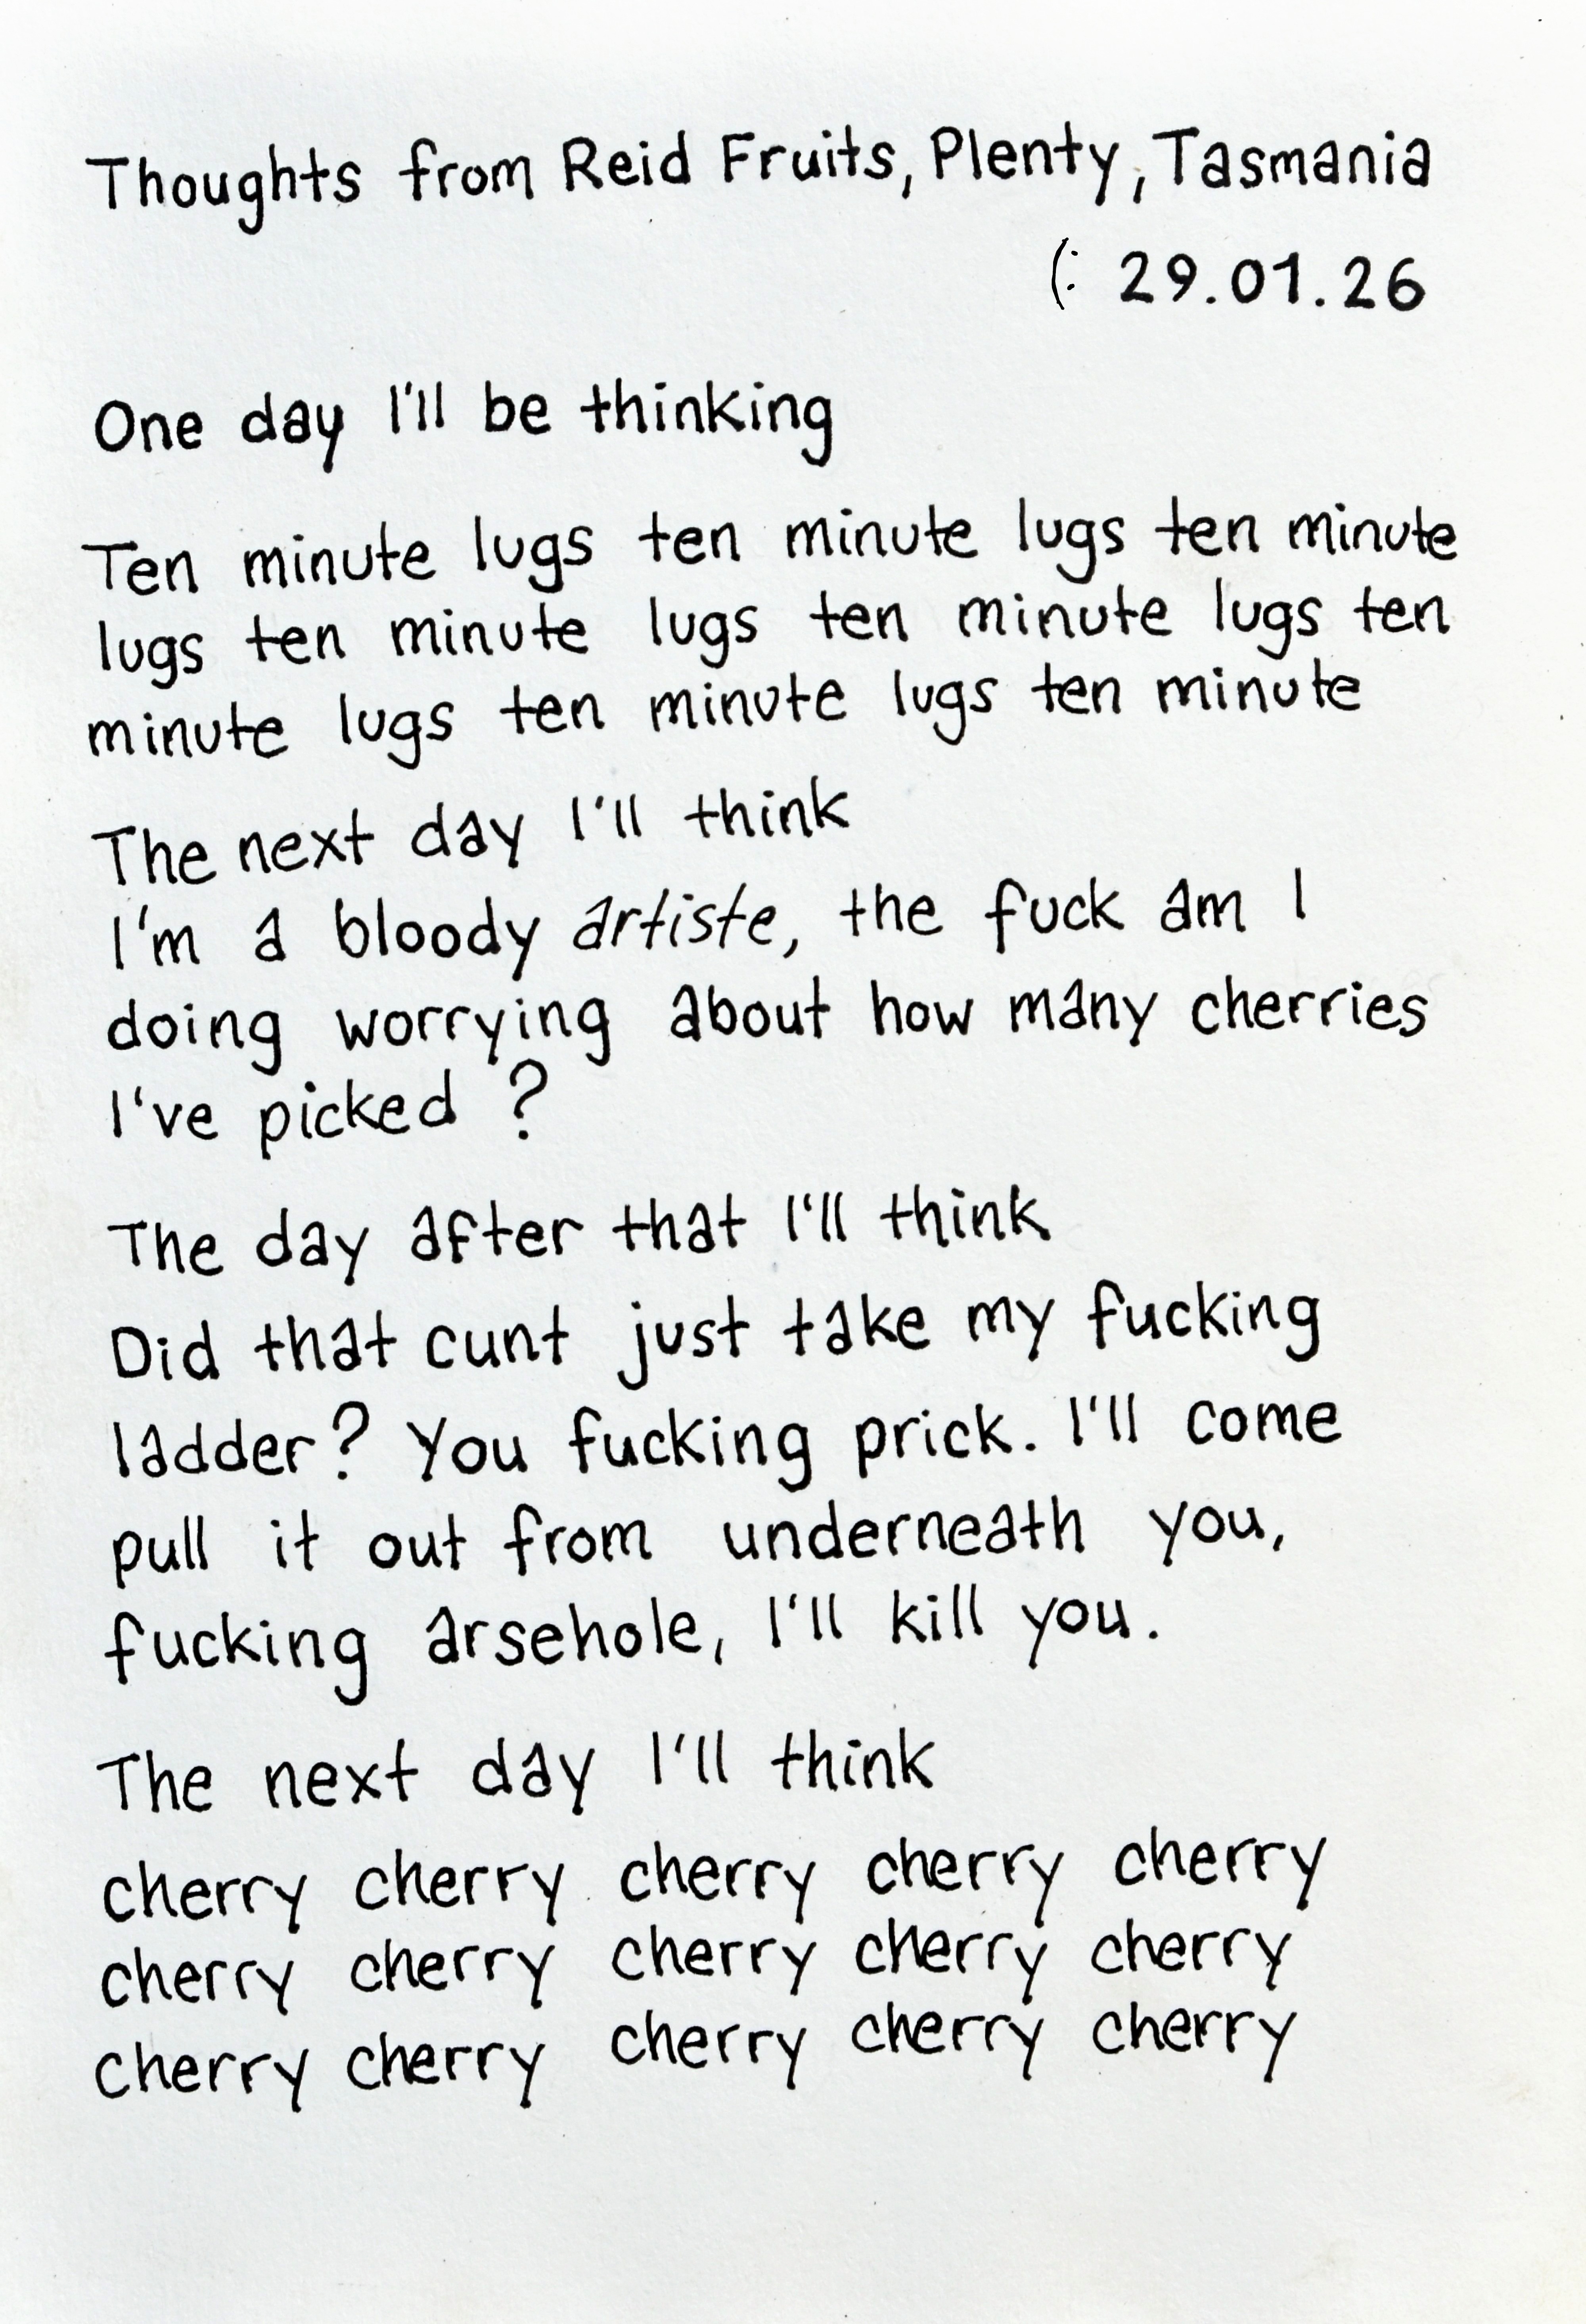 Thoughts from Reid Fruits, Plenty, Tasmania
(: 29.01.26
One day I'll be thinking
Ten minute lugs ten minute lugs ten minute
lugs ten minute lugs ten minute lugs ten
minute lugs ten minute lugs ten minute
The next day I'll think
I'm a bloody artiste, the fuck am I
doing worrying about how many cherries
I've picked ?
The day after that I'll think
Did that cunt just take my fucking
ladder? You fucking prick. I'll come
pull it out from underneath you,
fucking arsehole, I'll kill you.
The next day I'll think
cherry cherry cherry cherry cherry
cherry cherry cherry cherry cherry
cherry cherry cherry cherry cherry